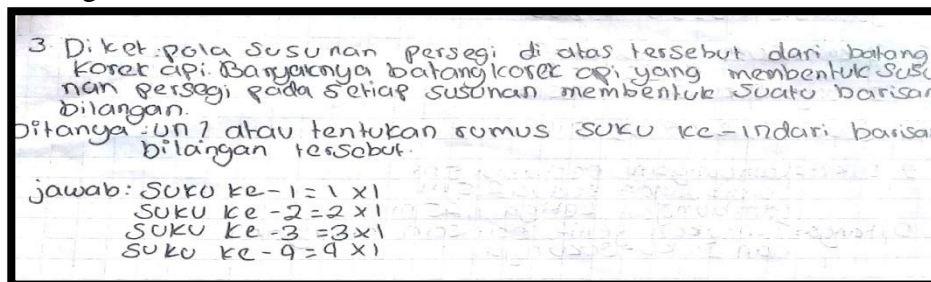 3. Diket: pola susunan persegi di atas tersebut dari batang
korek api. Banyaknya batang korek api yang membentuk susu
nan persegi pada setiap susunan membentuk suatu barisan
bilangan.
Ditanya: un? atau tentukan rumus suku ke-n dari barisa
bilangan tersebut.
jawab: suku ke-1 = 1 x 1
suku ke-2 = 2 x 1
suku ke-3 = 3 x 1
suku ke-4 = 4 x 1